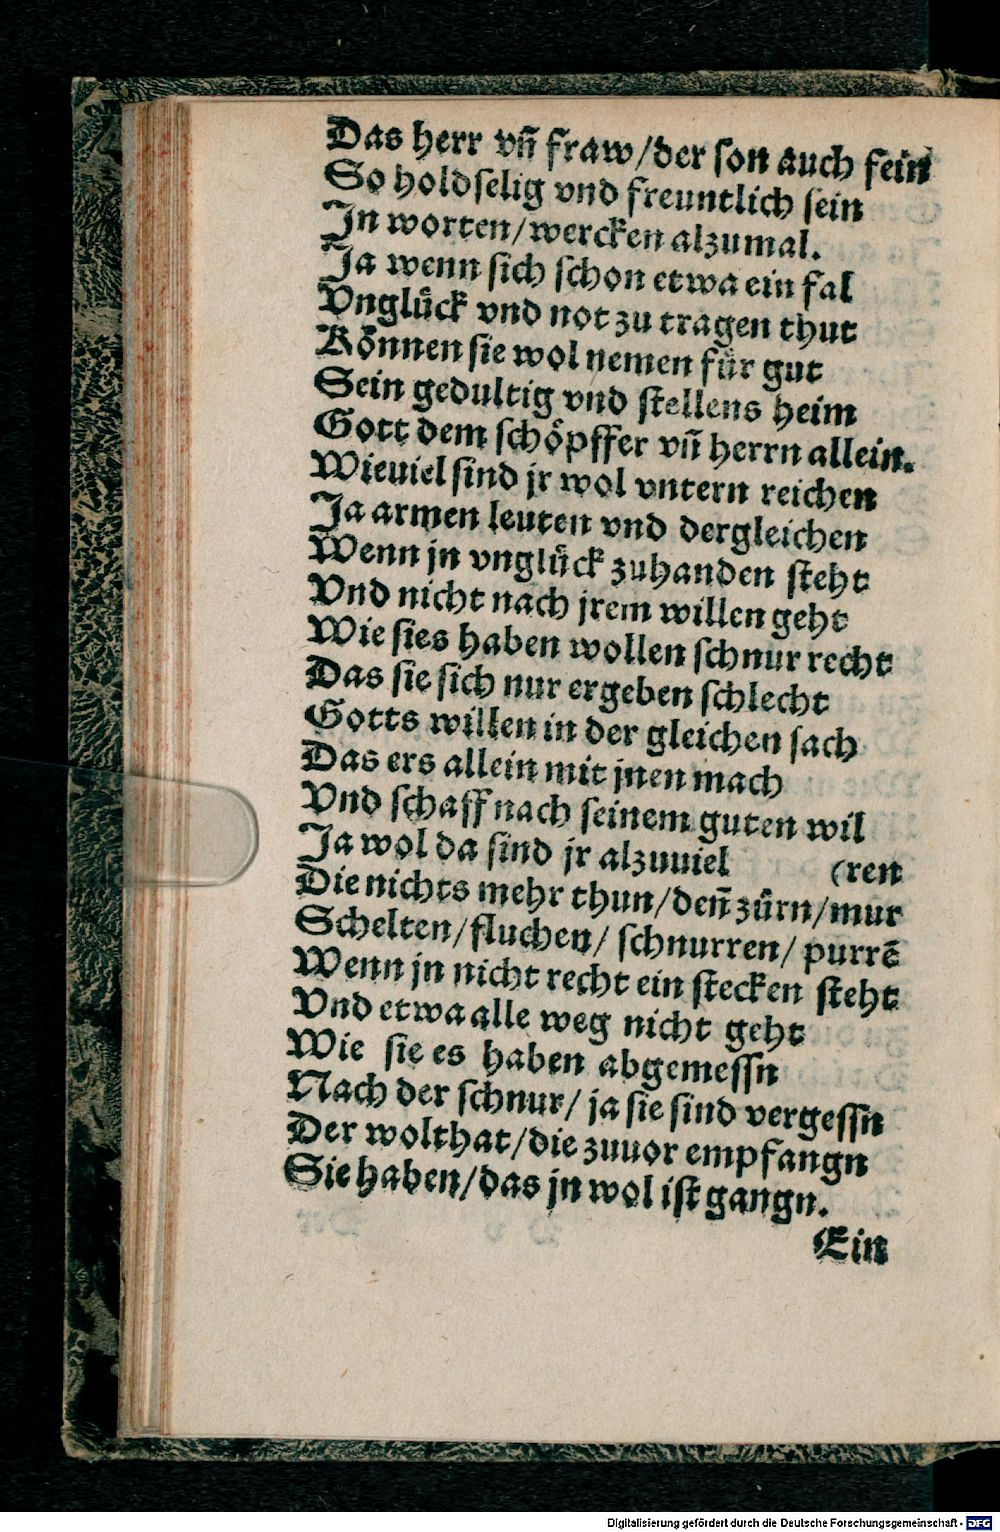 Das herr vñ fraw/der son auch fein
So holdselig vnd freuntlich sein
In worten/wercken alzumal.
Ja wenn sich schon etwa ein fal
Vnglůck vnd not zu tragen thut
Kőnnen sie wol nemen fůr gut
Sein gedultig vnd stellens heim
Gott dem schőpffer vñ herrn allein.
Wieuiel sind jr wol vntern reichen
Ja armen leuten vnd dergleichen
Wenn jn vnglůck zuhanden steht
Vnd nicht nach jrem willen geht
Wie sies haben wollen schnur recht
Das sie sich nur ergeben schlecht
Gotts willen in der gleichen sach
Das ers allein mit jnen mach
Vnd schaff nach seinem guten wil
Ja wol da sind jr alzuuiel (ren
Die nichts mehr thun/deñ zůrn/mur
Schelten/fluchen/ schnurren/ purrē
Wenn jn nicht recht ein stecken steht
Vnd etwa alle weg nicht geht
Wie sie es haben abgemessn
Nach der schnur/ ja sie sind vergessn
Der wolthat/die zuuor empfangn
Sie haben/das jn wol ist gangn.
Ein
Digitalisierung gefördert durch die Deutsche Forschungsgemeinschaft - DFG